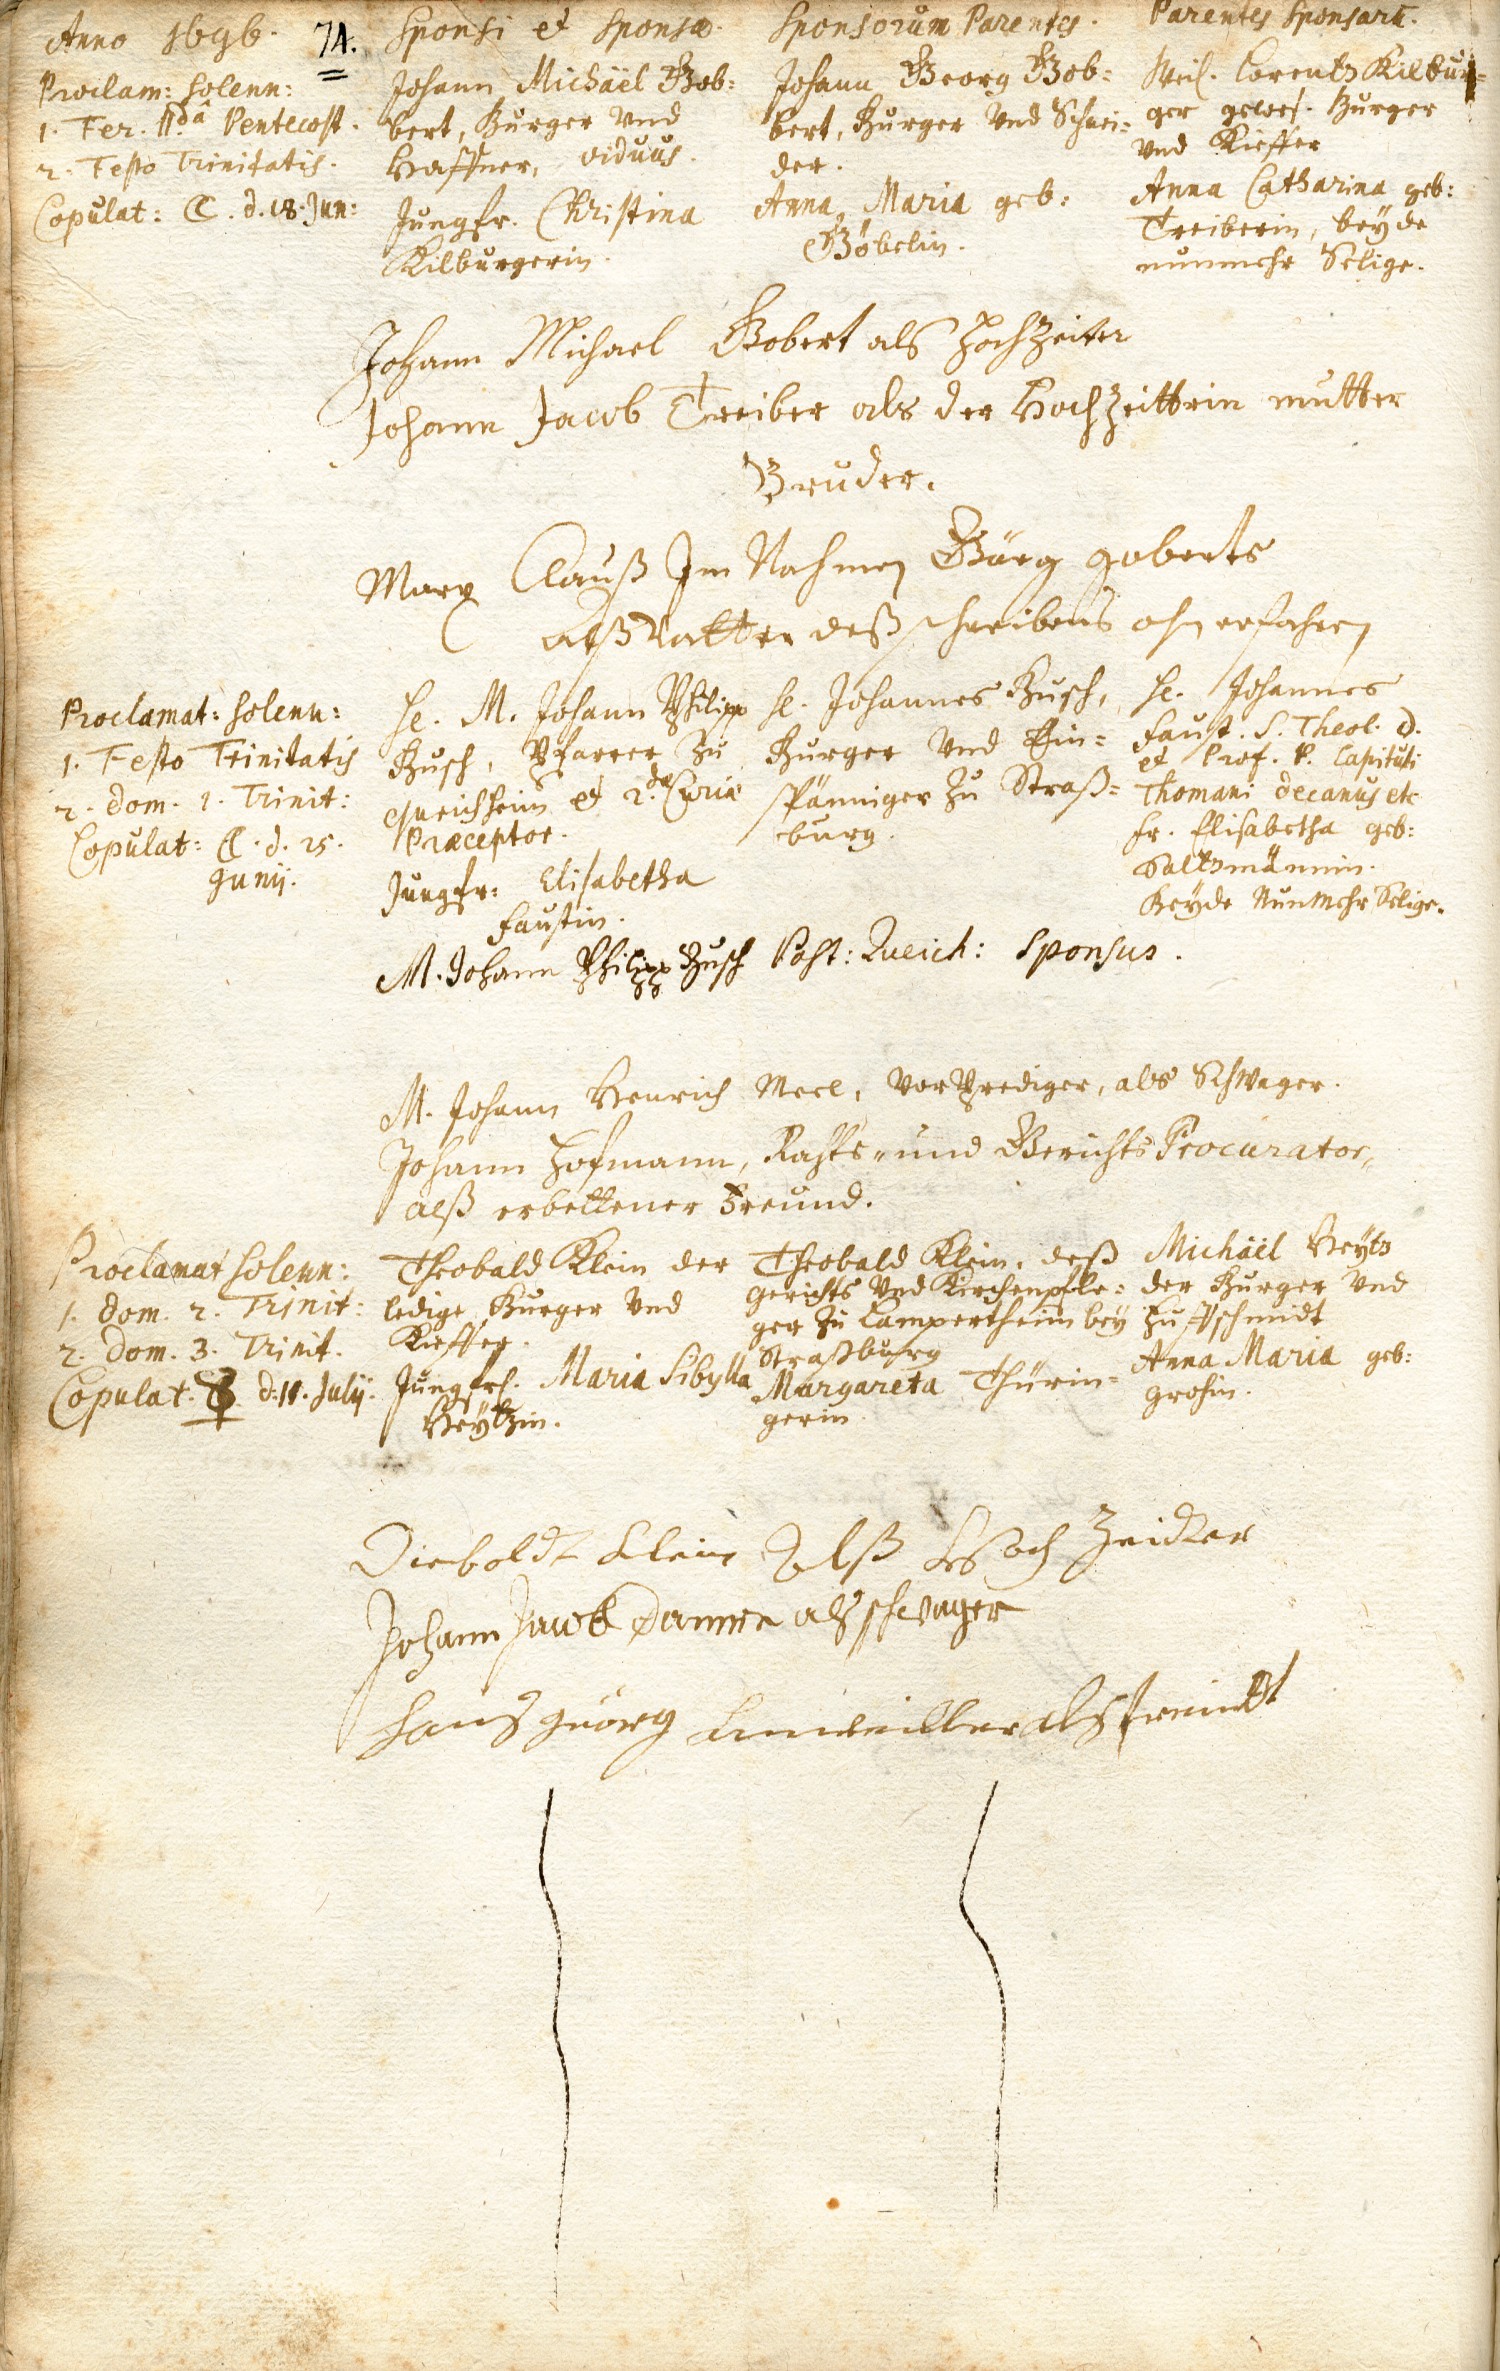 Anno 1696. 74. Sponsi et Sponsæ. Sponsorum Parentes. Parentes Sponsarū.
Proclam: Solenn:
1. Fer. IIdâ Pentecost.
2. Festo Trinitatis.
Copulat: ☾. d. 18. Jun:
Johann Michäel Gob=
bert, Burger und
Haffner, viduus.
Jungfr. Christina
Kilburgerin.
Johann Georg Gob=
bert, Burger und Schnei=
der.
Anna Maria geb:
Göbelin.
Weil. Lorentz Kilbur=
ger gewes. Burger
und Kieffer
Anna Catharina geb:
Treiberin, beyde
nunmehr Selige.
Johann Michael Gobert als Hochzeiter
Johann Jacob Treiber als der Hochzeittrin mutter
Bruder.
Marx Clauß Im Nahmen Görg goberts
alß Vatter deß schreibens ohn erfahren
Proclamat: Solenn:
1. Festo Trinitatis
2. Dom. 1. Trinit:
Copulat: ☾. d. 25.
Junij.
H. M. Johann Philipp
Busch, Pfarrer zu
Queichheim et 2.dæ Curiæ
Præceptor.
Jungfr: Elisabetha
Faustin.
H. Johannes Busch,
Burger und Ein=
spänniger zu Straß=
burg.
H. Johannes
Faust. S. Theol. D.
et Prof. P. Capituli
Thomani Decanus etc
Fr. Elisabetha geb:
Saltzmännin.
Beyde Nunmehr Selige.
M. Johann Philipp Busch Past: Queich: Sponsus.
M. Johann Henrich Merl, VorPrediger, als Schwager.
Johann Hofmann, Rahts- und Gerichts Procurator,
alß erbettener Freund.
Proclamat Solenn:
1. Dom. 2. Trinit:
2. Dom. 3. Trinit.
Copulat. d. 11. Julij.
Theobald Klein der
ledige Burger und
Kieffer.
Jungfr. Maria Sibylla
Heytzin.
Theobald Klein, deß
Gerichts und Kirchenpfle=
ger zu Lampertheim bey
Straßburg
Margareta Thürin=
gerin.
Michäel Heytz
der Burger und
Hufschmidt
Anna Maria geb:
Grohin.
Dieboldt Klein Alß Hoch Zeidter
Johann Jacob als schwager
Hans Geörg als freindt